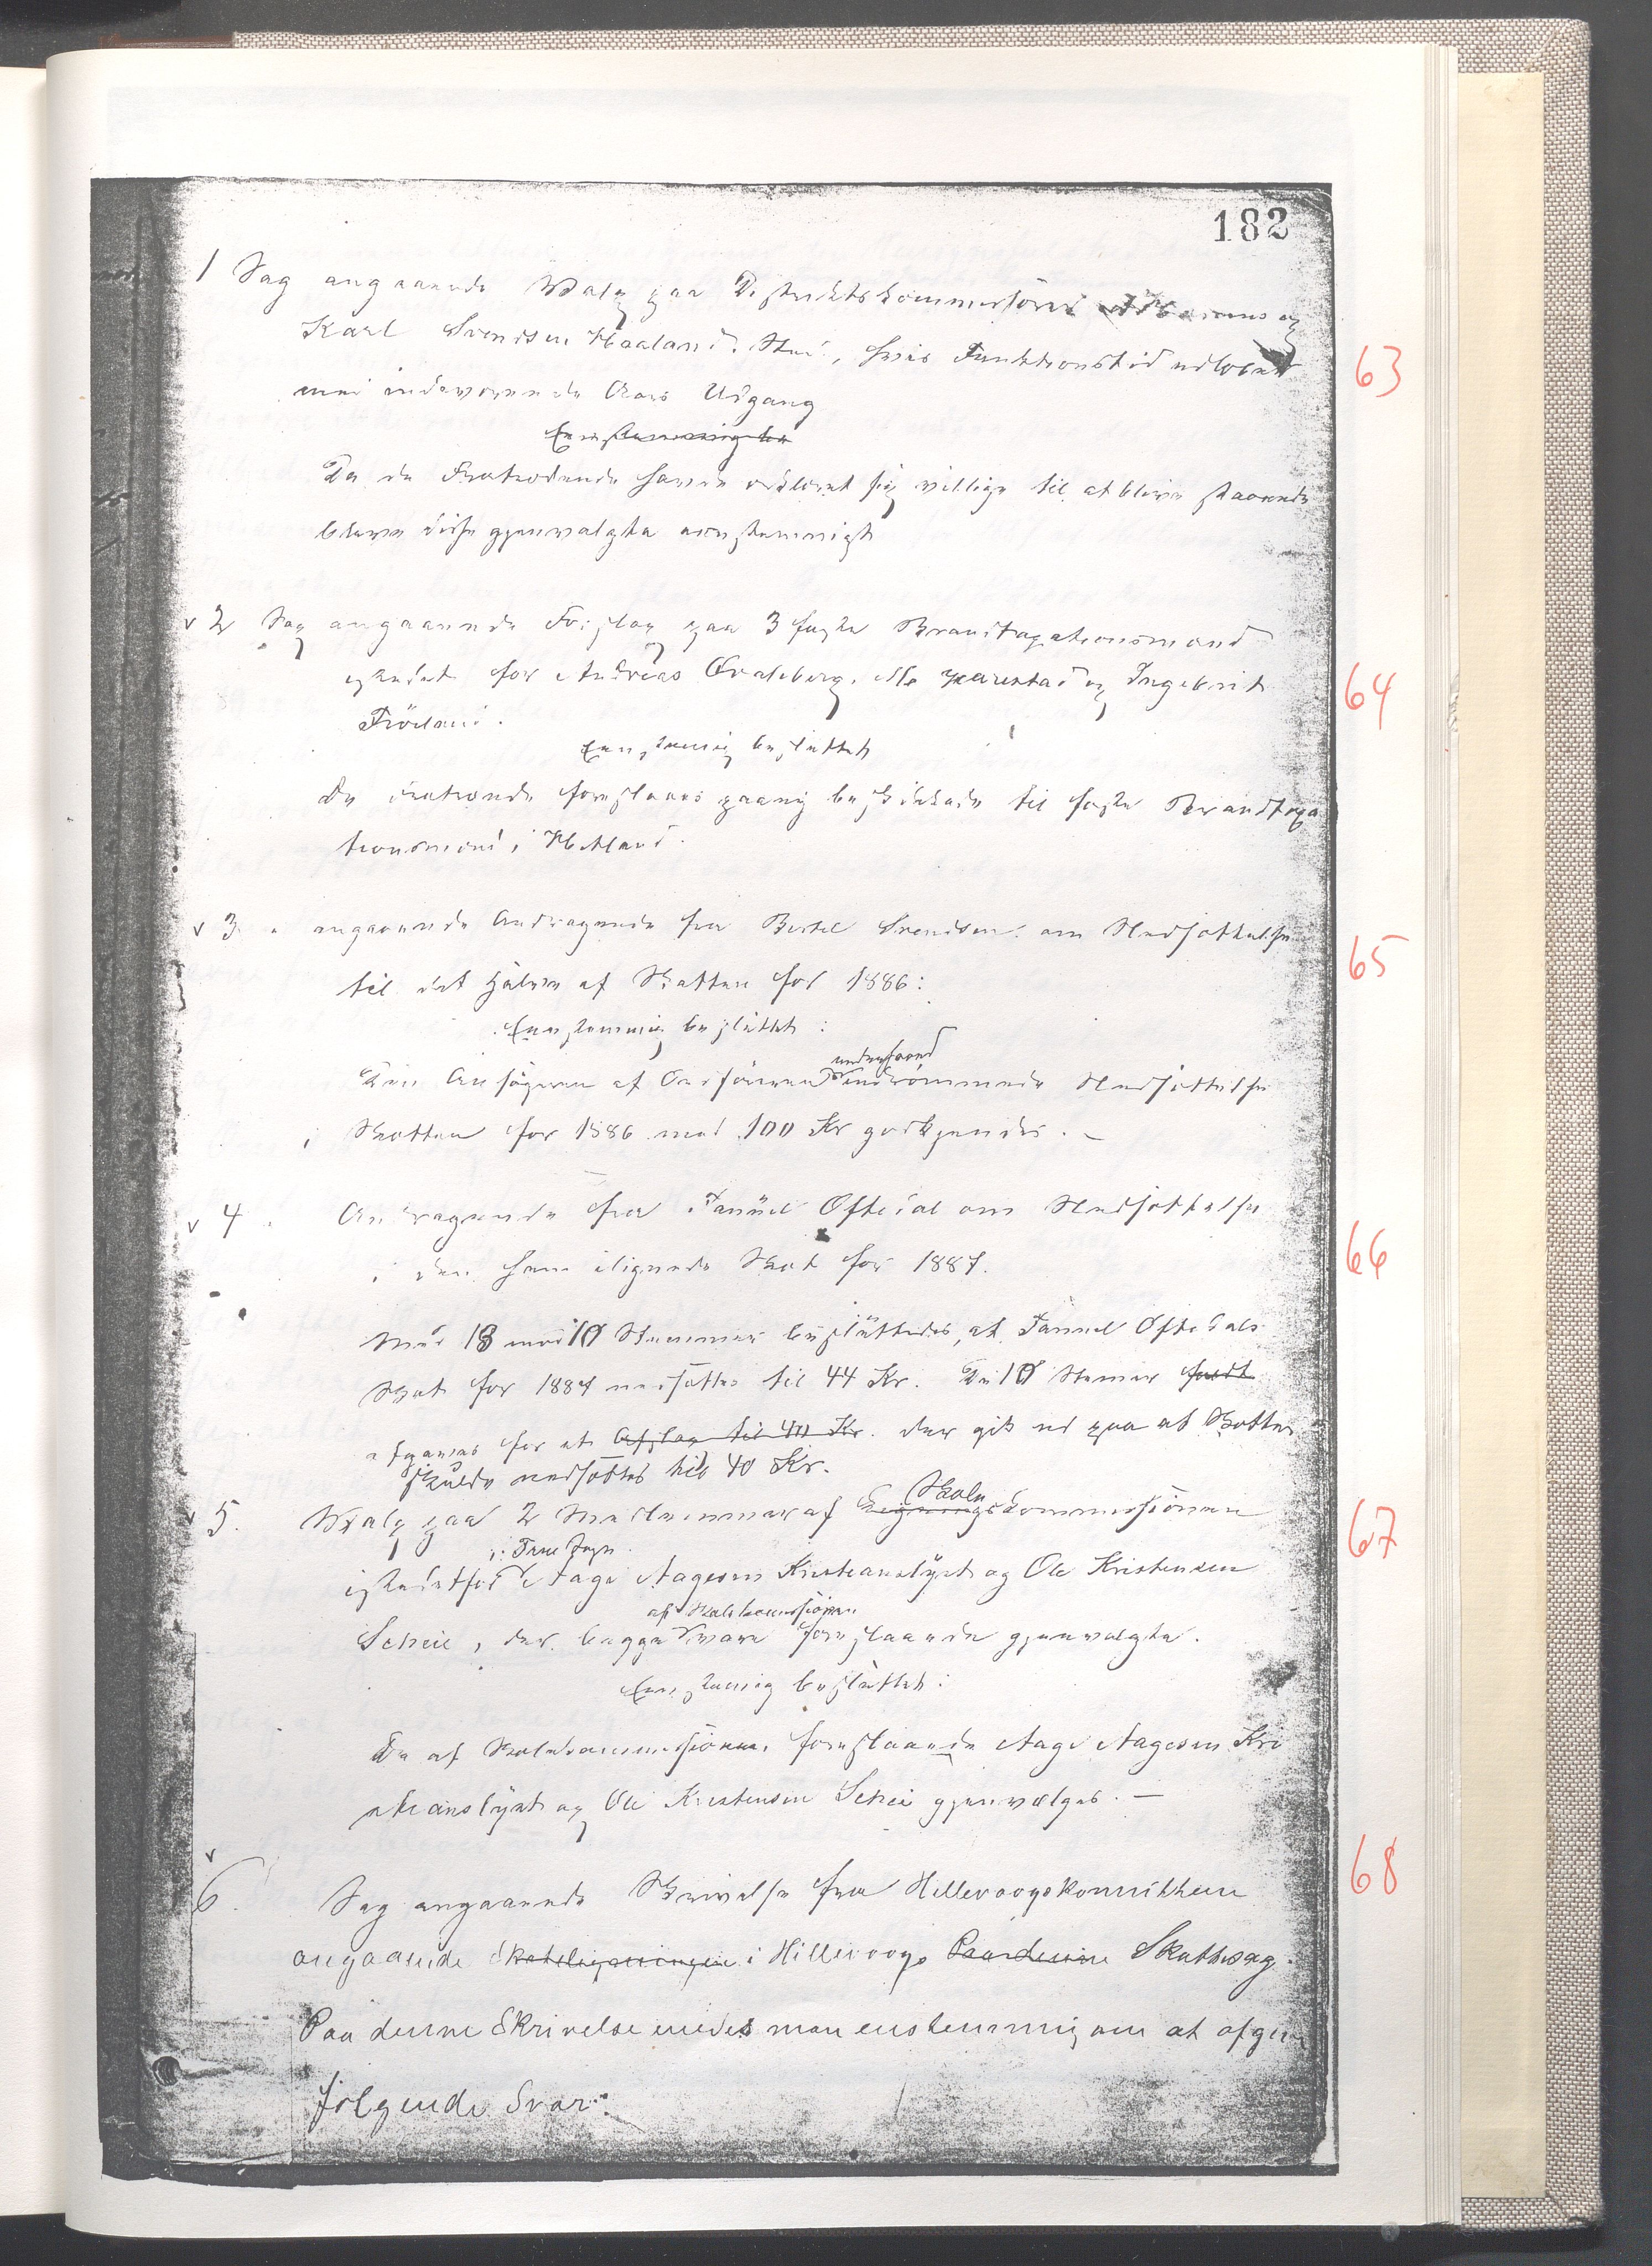 182
1 Sag angaaende Valg paa Distriktskommissörer og
Karl Svendsen Haaland, hvis Funktionstid udlöber
med indeværende Aars Udgang
Eenstemmigt
Da de Fratrædende havde erklæret sig villige til at blive staaende
bleve disse gjenvalgte eenstemmigt
63
v 2 Sag angaaende Forslag paa 3 faste Brandtaxationsmænd
istedet for Andreas og Ingebrit
Fröiland.
Eenstemmig besluttet
De fratrædende foreslaaes paany beskikkede til faste Brandtaxa
tionsmænd i Hetland.
64
v 3 " angaaende Andragende fra Bertel Svendsen om Nedsættelse
til det halve af Skatten for 1886:
Eenstemmig besluttet:
Den Ansögeren af Ordföreren indrömmede Nedsættelse
i Skatten for 1886 med 100 Kr godkjendes. –
65
v 4 " Andragende fra Samuel Oftedal om Nedsættelse
i den ham ilignede Skat for 1887.
Med 18 mod 10 Stemmer besluttedes, at Samuel Oftedals
Skat for 1887 nedsættes til 44 Kr. De 10 Stemmer faldt
afgaves for at Afslag til 40 Kr. der gik ud paa at Skatten
skulde nedsættes til 40 Kr.
66
v 5. Valg paa 2 Medlemmer af Lignings Skolekommissionen
i Frue Sogn
istedetfor Aage Aagesen Kristianslyst og Ole Kristensen
Scheie, der begge af Skolekommissionen vare foreslaaede gjenvalgte.
Eenstemmig besluttet:
De af Skolekommissionen foreslaaede Aage Aagesen Kri
stianslyst og Ole Kristensen Scheie gjenvælges. –
67
v
6. Sag angaaende Skrivelse fra Hillevaagskomiteen
angaaende Skateligningen i Hillevaags Paa denne Skattesag.
Paa denne Skrivelse enedes man enstemmig om at afgive
følgende Svar:
68